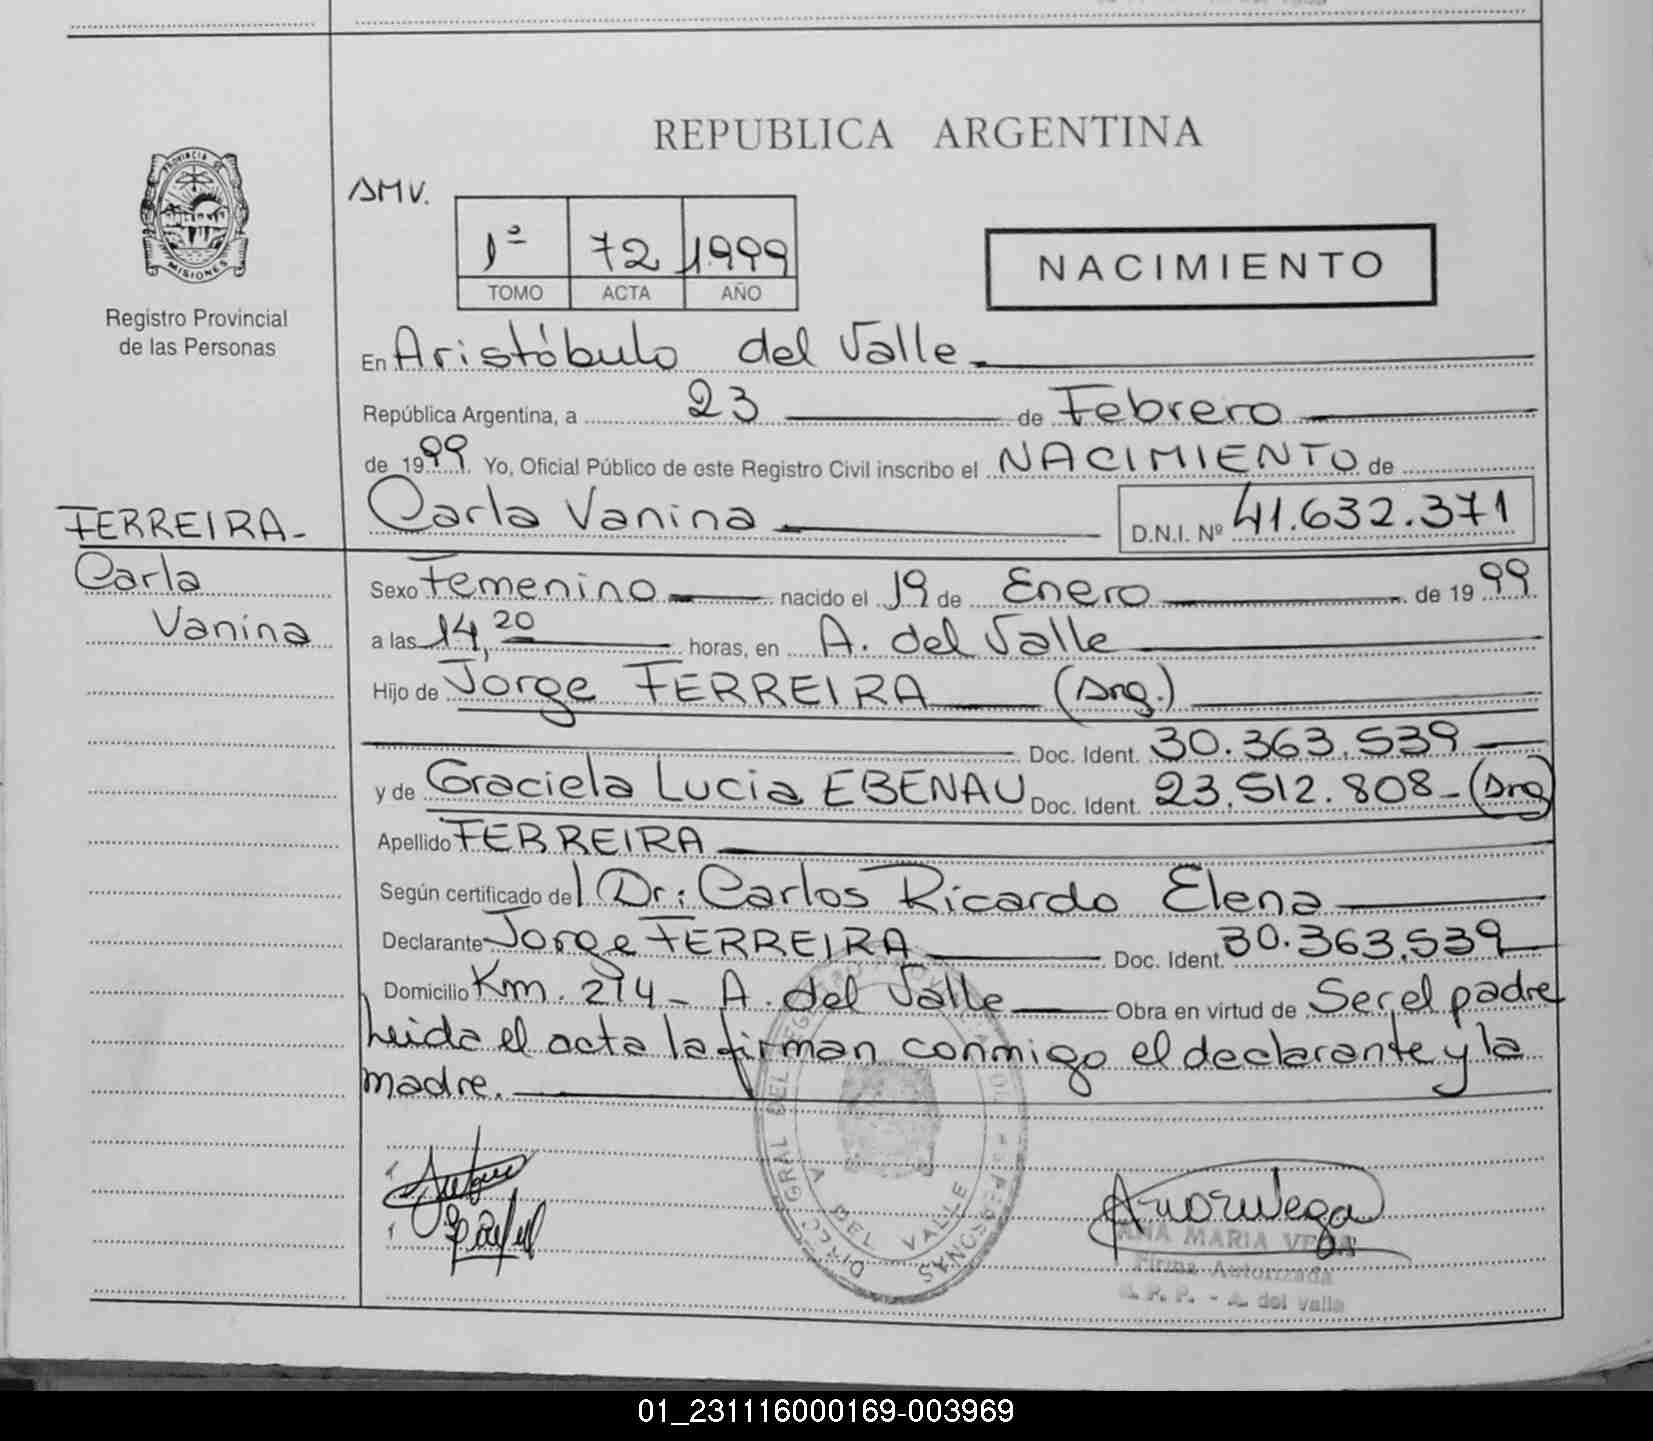 REPUBLICA ARGENTINA
PROVINCIA DE MISIONES
Registro Provincial
de las Personas
AMV.
1º 72 1999
TOMO ACTA AÑO
NACIMIENTO
En Aristóbulo del Valle
República Argentina, a 23 de Febrero
de 1999. Yo, Oficial Público de este Registro Civil inscribo el NACIMIENTO de
Carla Vanina D.N.I. Nº 41.632.371
FERREIRA-
Carla
Vanina
Sexo Femenino nacido el 19 de Enero de 1999
a las 14,20 horas, en A. del Valle
Hijo de Jorge FERREIRA (Arg.)
Doc. Ident. 30.363.539
y de Graciela Lucia EBENAU Doc. Ident. 23.512.808-(Arg)
Apellido FERREIRA
Según certificado del Dr: Carlos Ricardo Elena
Declarante Jorge FERREIRA Doc. Ident. 30.363.539
Domicilio Km. 214- A. del Valle Obra en virtud de Ser el padre
Leida el acta la firman conmigo el declarante y la
madre.
DEL VALLE
ANA MARIA VEGA
Firma Autorizada
R. P. P. - A. del Valle
01_231116000169-003969